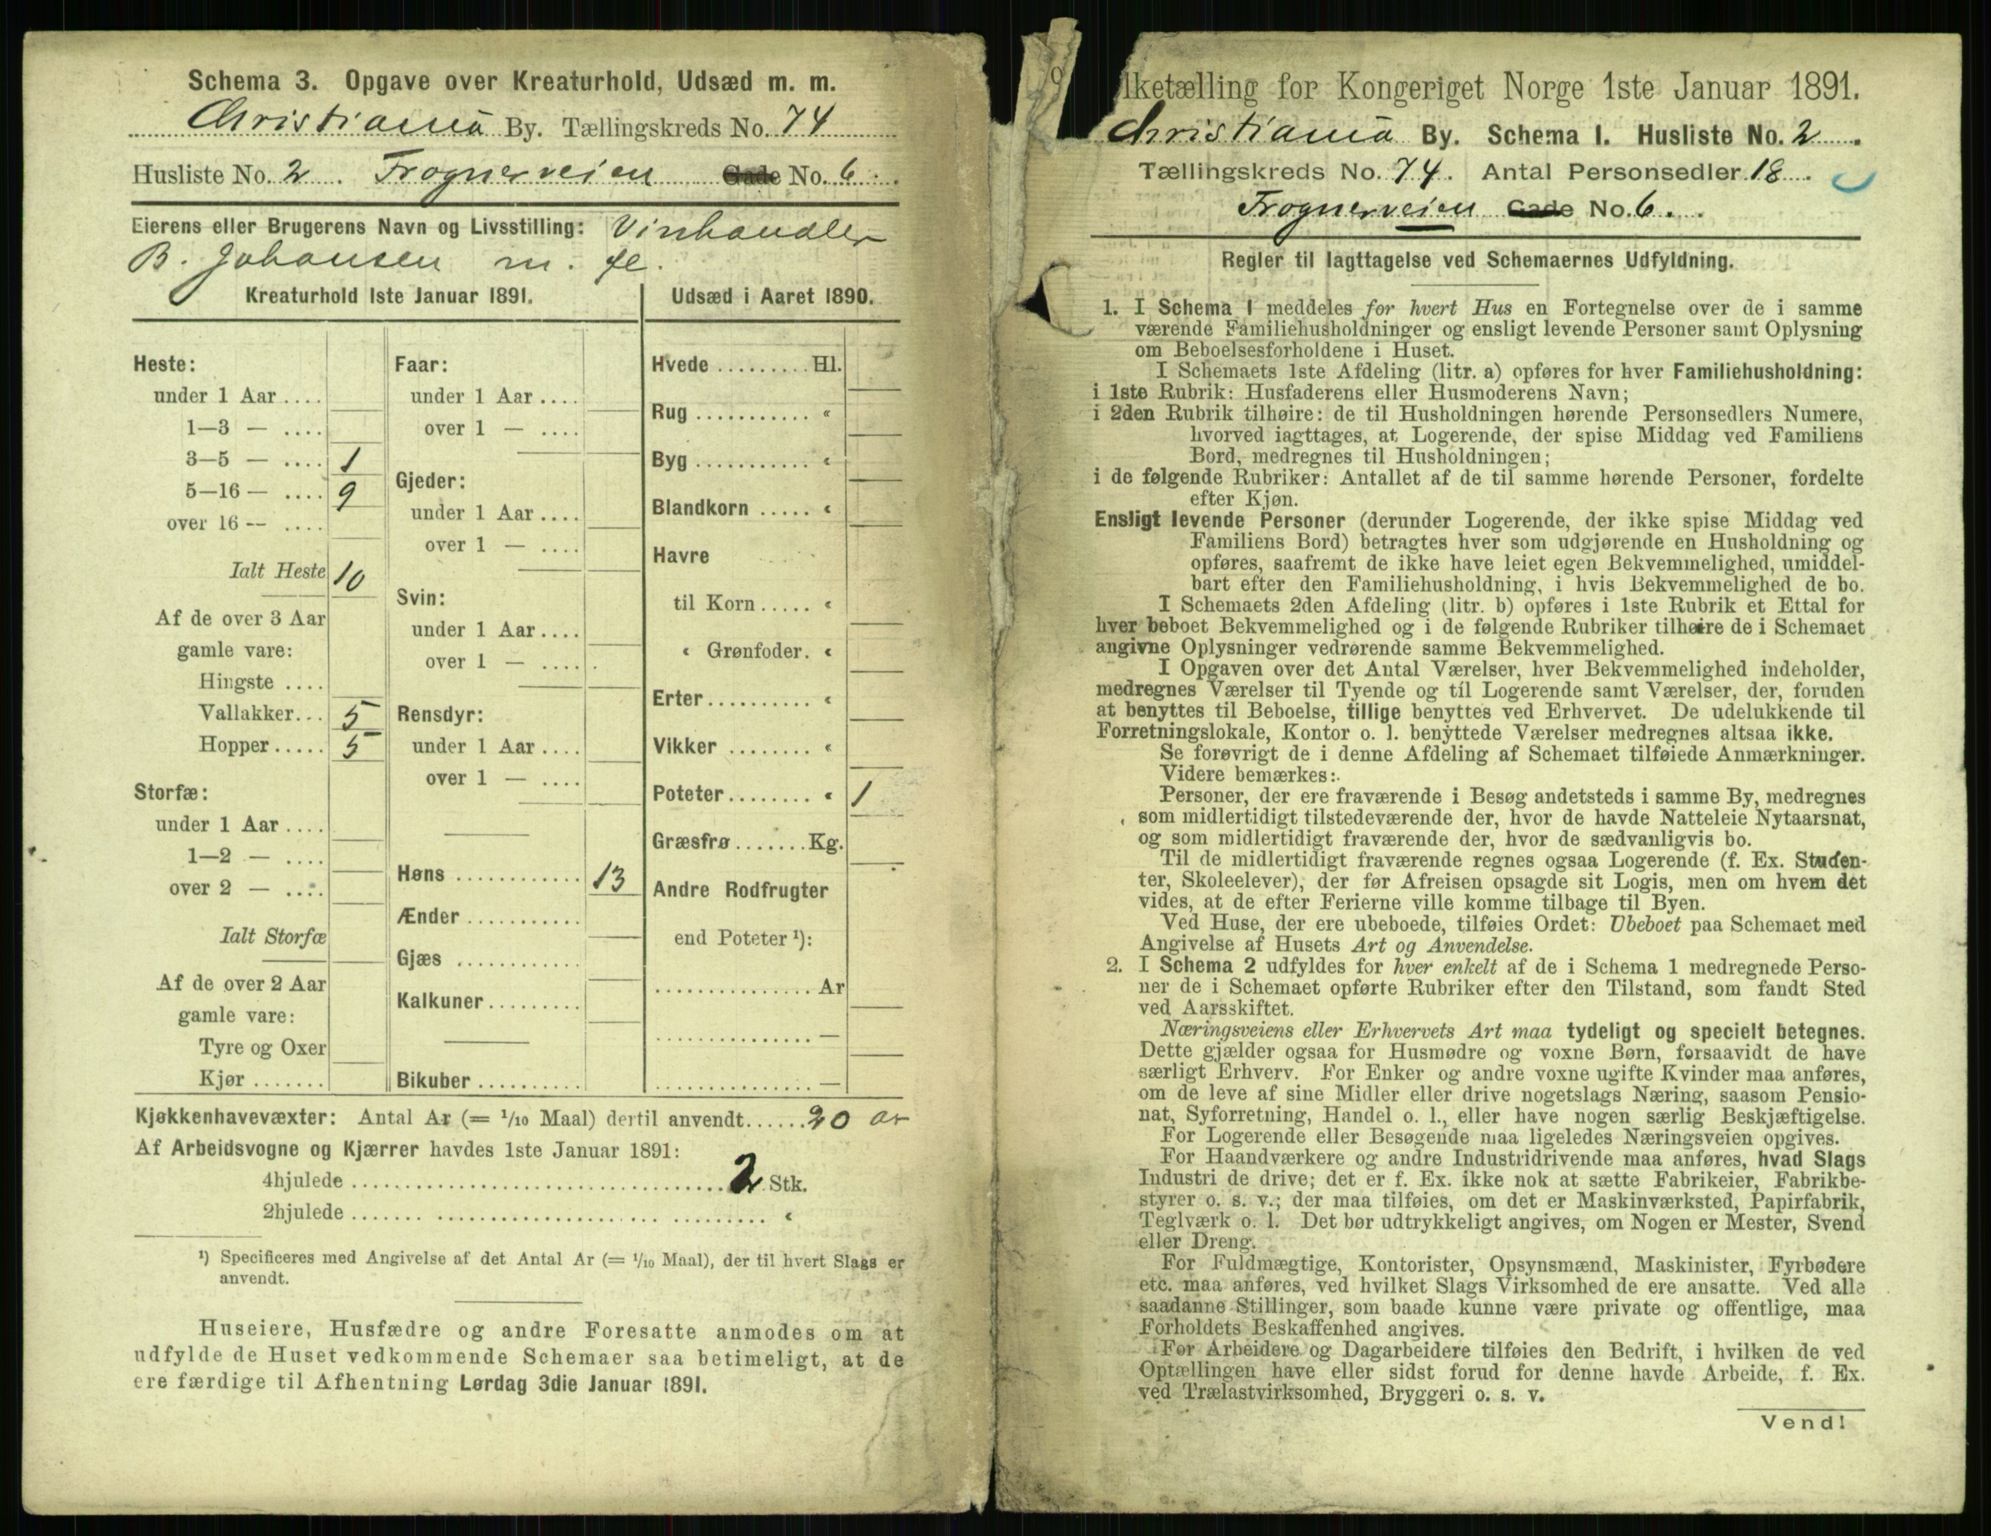 Schema 3. Opgave over Kreaturhold, Udsæd m. m.
Christiania By. Tællingskreds No. 74
Husliste No. 2. Frognerveien Gade No. 6.
Eierens eller Brugerens Navn og Livsstilling: Vinhandler
B. Johansen m. fl.
Kreaturhold 1ste Januar 1891.
Heste:
under 1 Aar ....
1—3 — ....
3—5 — .... 1
5—16 — .... 9
over 16 — ....
Ialt Heste 10
Af de over 3 Aar
gamle vare:
Hingste ....
Vallakker... 5
Hopper ..... 5
Storfæ:
under 1 Aar ....
1—2 — ....
over 2 — ....
Ialt Storfæ
Af de over 2 Aar
gamle vare:
Tyre og Oxer
Kjør ........
Faar:
under 1 Aar ....
over 1 — ....
Gjeder:
under 1 Aar ....
over 1 — ....
Svin:
under 1 Aar ....
over 1 — ....
Rensdyr:
under 1 Aar ....
over 1 — ....
Høns ............ 13
Ænder ...........
Gjæs ............
Kalkuner.........
Bikuber ..........
Udsæd i Aaret 1890.
Hvede ......... Hl.
Rug ........... «
Byg ........... «
Blandkorn ..... «
Havre
til Korn ..... «
« Grønfoder. «
Erter ......... «
Vikker ........ «
Poteter ........ « 1
Græsfrø ....... Kg.
Andre Rodfrugter
end Poteter ¹):
............... Ar
............... —
............... —
Kjøkkenhavevæxter: Antal Ar (= 1/10 Maal) dertil anvendt...... 20 ar
Af Arbeidsvogne og Kjærrer havdes 1ste Januar 1891:
4hjulede .................................... 2 Stk.
2hjulede .................................... «
¹) Specificeres med Angivelse af det Antal Ar (= 1/10 Maal), der til hvert Slags er
anvendt.
Huseiere, Husfædre og andre Foresatte anmodes om at
udfylde de Huset vedkommende Schemaer saa betimeligt, at de
ere færdige til Afhentning Lørdag 3die Januar 1891.
lketælling for Kongeriget Norge 1ste Januar 1891.
Christiania By. Schema I. Husliste No. 2.
Tællingskreds No. 74. Antal Personsedler 18.
Frognerveien Gade No. 6.
Regler til Iagttagelse ved Schemaernes Udfyldning.
1. I Schema I meddeles for hvert Hus en Fortegnelse over de i samme
værende Familiehusholdninger og ensligt levende Personer samt Oplysning
om Beboelsesforholdene i Huset.
I Schemaets 1ste Afdeling (litr. a) opføres for hver Familiehusholdning:
i 1ste Rubrik: Husfaderens eller Husmoderens Navn;
i 2den Rubrik tilhøire: de til Husholdningen hørende Personsedlers Numere,
hvorved iagttages, at Logerende, der spise Middag ved Familiens
Bord, medregnes til Husholdningen;
i de følgende Rubriker: Antallet af de til samme hørende Personer, fordelte
efter Kjøn.
Ensligt levende Personer (derunder Logerende, der ikke spise Middag ved
Familiens Bord) betragtes hver som udgjørende en Husholdning og
opføres, saafremt de ikke have leiet egen Bekvemmelighed, umiddel-
bart efter den Familiehusholdning, i hvis Bekvemmelighed de bo.
I Schemaets 2den Afdeling (litr. b) opføres i 1ste Rubrik et Ettal for
hver beboet Bekvemmelighed og i de følgende Rubriker tilhøire de i Schemaet
angivne Oplysninger vedrørende samme Bekvemmelighed.
I Opgaven over det Antal Værelser, hver Bekvemmelighed indeholder,
medregnes Værelser til Tyende og til Logerende samt Værelser, der, foruden
at benyttes til Beboelse, tillige benyttes ved Erhvervet. De udelukkende til
Forretningslokale, Kontor o. l. benyttede Værelser medregnes altsaa ikke.
Se forøvrigt de i denne Afdeling af Schemaet tilføiede Anmærkninger.
Videre bemærkes:
Personer, der ere fraværende i Besøg andetsteds i samme By, medregnes
som midlertidigt tilstedeværende der, hvor de havde Natteleie Nytaarsnat,
og som midlertidigt fraværende der, hvor de sædvanligvis bo.
Til de midlertidigt fraværende regnes ogsaa Logerende (f. Ex. Studen-
ter, Skoleelever), der før Afreisen opsagde sit Logis, men om hvem det
vides, at de efter Ferierne ville komme tilbage til Byen.
Ved Huse, der ere ubeboede, tilføies Ordet: Ubeboet paa Schemaet med
Angivelse af Husets Art og Anvendelse.
2. I Schema 2 udfyldes for hver enkelt af de i Schema 1 medregnede Perso-
ner de i Schemaet opførte Rubriker efter den Tilstand, som fandt Sted
ved Aarsskiftet.
Næringsveiens eller Erhvervets Art maa tydeligt og specielt betegnes.
Dette gjælder ogsaa for Husmødre og voxne Børn, forsaavidt de have
særligt Erhverv. For Enker og andre voxne ugifte Kvinder maa anføres,
om de leve af sine Midler eller drive nogetslags Næring, saasom Pensio-
nat, Syforretning, Handel o. l., eller have nogen særlig Beskjæftigelse.
For Logerende eller Besøgende maa ligeledes Næringsveien opgives.
For Haandværkere og andre Industridrivende maa anføres, hvad Slags
Industri de drive; det er f. Ex. ikke nok at sætte Fabrikeier, Fabrikbe-
styrer o. s. v.; der maa tilføies, om det er Maskinværksted, Papirfabrik,
Teglværk o. l. Det bør udtrykkeligt angives, om Nogen er Mester, Svend
eller Dreng.
For Fuldmægtige, Kontorister, Opsynsmænd, Maskinister, Fyrbødere
etc. maa anføres, ved hvilket Slags Virksomhed de ere ansatte. Ved alle
saadanne Stillinger, som baade kunne være private og offentlige, maa
Forholdets Beskaffenhed angives.
For Arbeidere og Dagarbeidere tilføies den Bedrift, i hvilken de ved
Optællingen have eller sidst forud for denne havde Arbeide, f. Ex.
ved Trælastvirksomhed, Bryggeri o. s. v.
Vend!